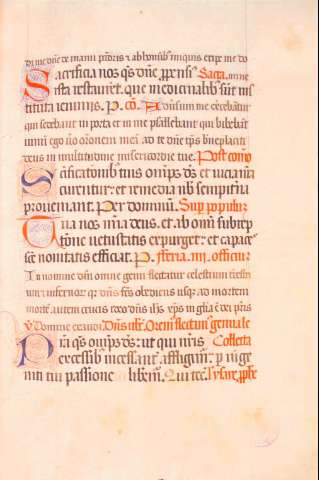 di me dñe de manu p̃ctoris et ab hoĩnibus iniquis eripe me do
Sacrificia nos q̃s dñe p̃pensi Sacra. nme
ista restaurent. que medicinalib; sũt ins
tituta ieiuniis. P. cõ. Aduersum me exercebãtur
qui sedebant in porta et in me psallebant qui bibebãt
uinũ ego ũo orõnem meã ad te dñe tp̃s bñeplaciti
deus in multitudine misericordie tue. Post comõ
Sanctificationib; tuis omp̃s d̃s et uicia nr̃a
curentur. et remedia nob̃ sempit̃na
proueniant. Per dominũ. Sup popului
Tua nos mĩa deus. et ab om̃i subrep
tione uetustatis expurget. et capaces
sc̃e nouitatis efficiat. P. feria. iiii. officiũ
In nomine dñi omne genu flectatur celestium t̃restri
um et infernor̃. q̃r dñs f̃cs obediens usq; ad mortem
morte. autem crucis ideo dñs ih̃s xp̃s in gl̃ia ẽ dei p̃ris
p̃ Domine exaudi. Dñs uobc̃. Orem̃ flectamus genua le
Pr̃a q̃s omp̃s d̃s: ut qui nr̃is Collecta
excessib; incessant̃. affligim̃: p unige
niti tui passione liberem̃. Qui tec̃. ysaie. pph̃e